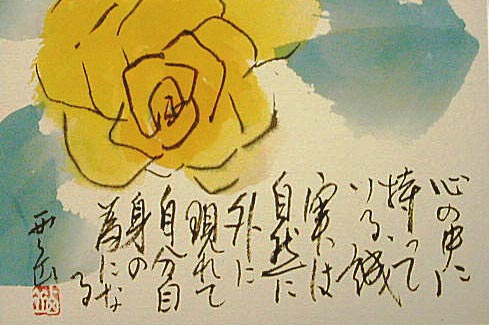 心の中に
持って
いる、誠
実は
自然に
外に
現れて
自分自
身の
為にな
る